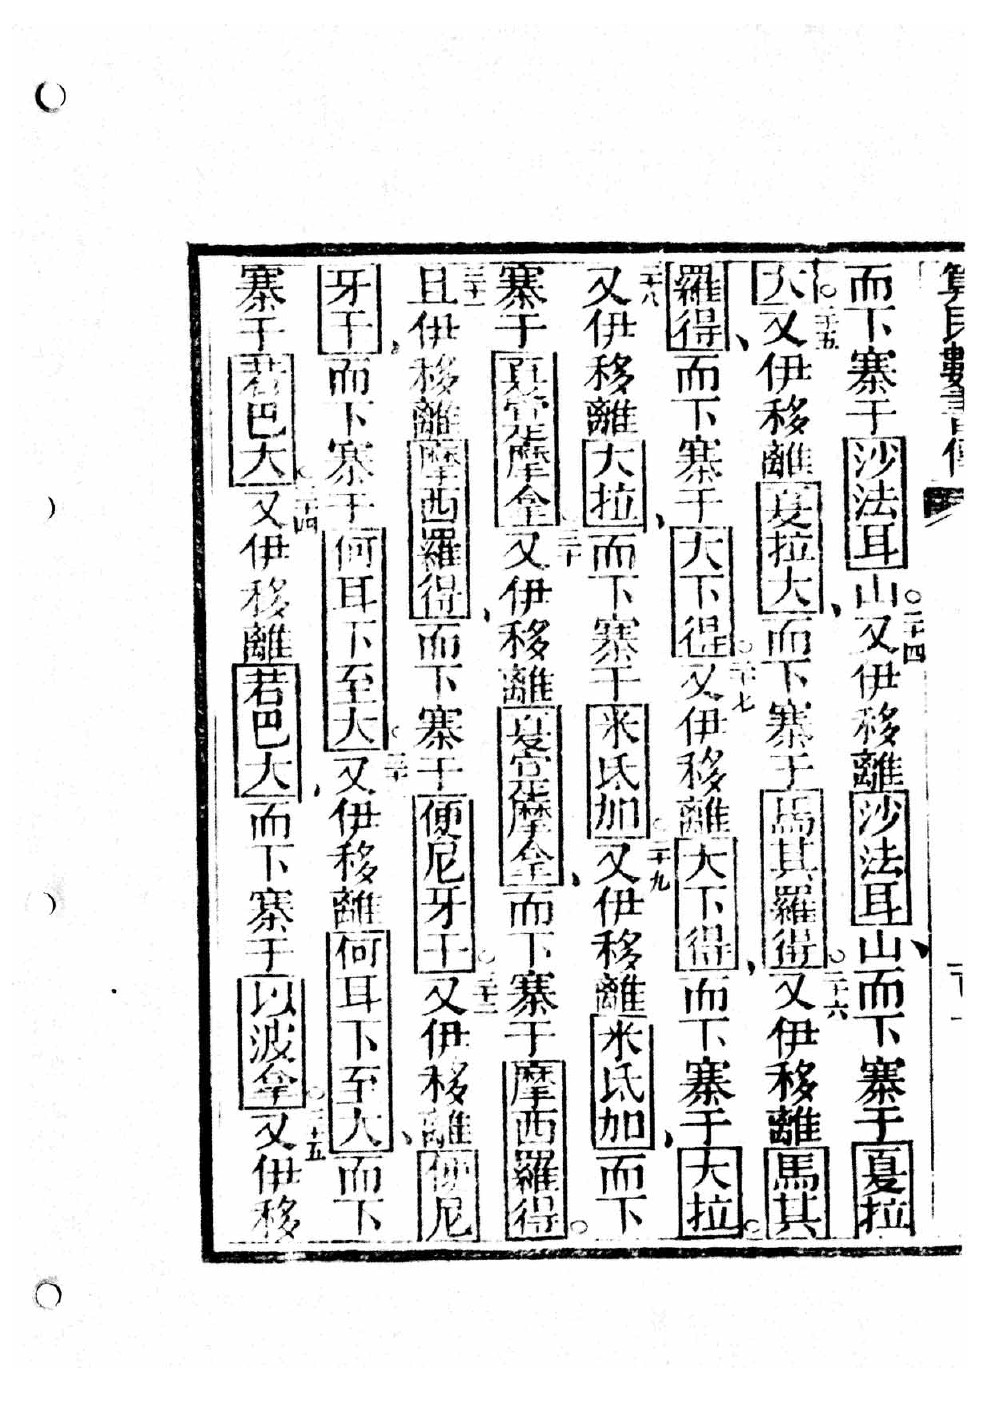 算民數書傳
而下寨于沙法耳山。二十四又伊移離沙法耳山、而下寨于夏拉
大。二十五又伊移離夏拉大、而下寨于馬其羅得。二十六又伊移離馬其
羅得、而下寨于大下得。二十七又伊移離大下得、而下寨于大拉。
二十八又伊移離大拉、而下寨于米氐加。二十九又伊移離米氐加、而下
寨于夏摩拿。三十又伊移離夏摩拿、而下寨于摩西羅得。
三十一且伊移離摩西羅得、而下寨于便尼牙干。三十二又伊移離便尼
牙干、而下寨于何耳下至大。三十又伊移離何耳下至大、而下
寨于若巴大。三十四又伊移離若巴大、而下寨于以波拿。三十五又伊移